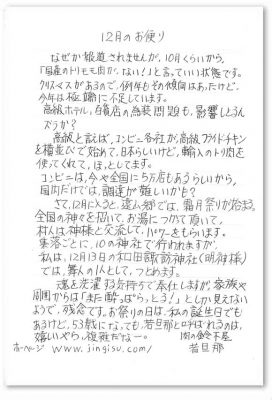 12月のお便り
なぜか報道されませんが、10月くらいから、
「国産のトリモモ肉が、ない!」と言っていい状態です。
クリスマスがあるので、例年もその傾向はあったけど、
今年は極端に不足しています。
高級ホテル、百貨店の偽装問題も、影響してるん
だろうか?
高級と言えば、コンビニ各社が、高級フライドチキン
を積極的で始めて、日本らしいけど、輸入のトリ肉を
使ってくれて、ほっとしてます。
コンビニは、今や全国に5万店もあるらしいから、
国内だけでは、調達が難しいかも?
さて、12月に入ると、遠山郷では、霜月祭りが始まる。
全国の神々を招いて、お湯につかって頂いて、
村人は神様と交流して、パワーをもらいます。
集落ごとに、10の神社で行われますが、
私は、12月13日の和田諏訪神社(明神様)
では、舞人の1人として、つとめます。
魂を浄化する気持ちで奉仕しますが、家族や
周囲からは「また酔っぱらっとる!」としか見えない
ようで、残念です。お祭りの日は、私の誕生日でも
あるけど、53歳になっても、若旦那と呼ばれるのは、
嬉しいやら、複雑だなー。 肉の鈴木屋
ホームページ www.jingisu.com/ 若旦那